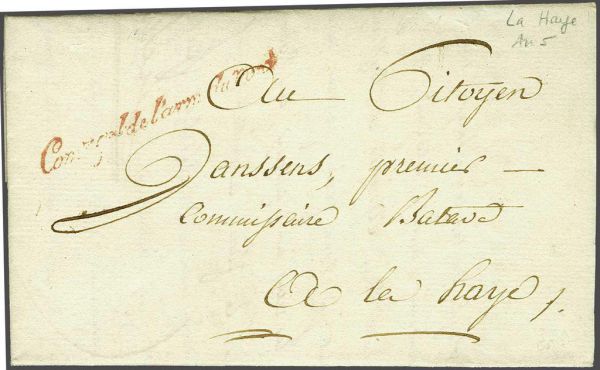 La Haye
An 5
Comre gnl de l'arm. du Nord
Au Citoyen
Janssens, premier —
Commissaire Batave
A la haye,